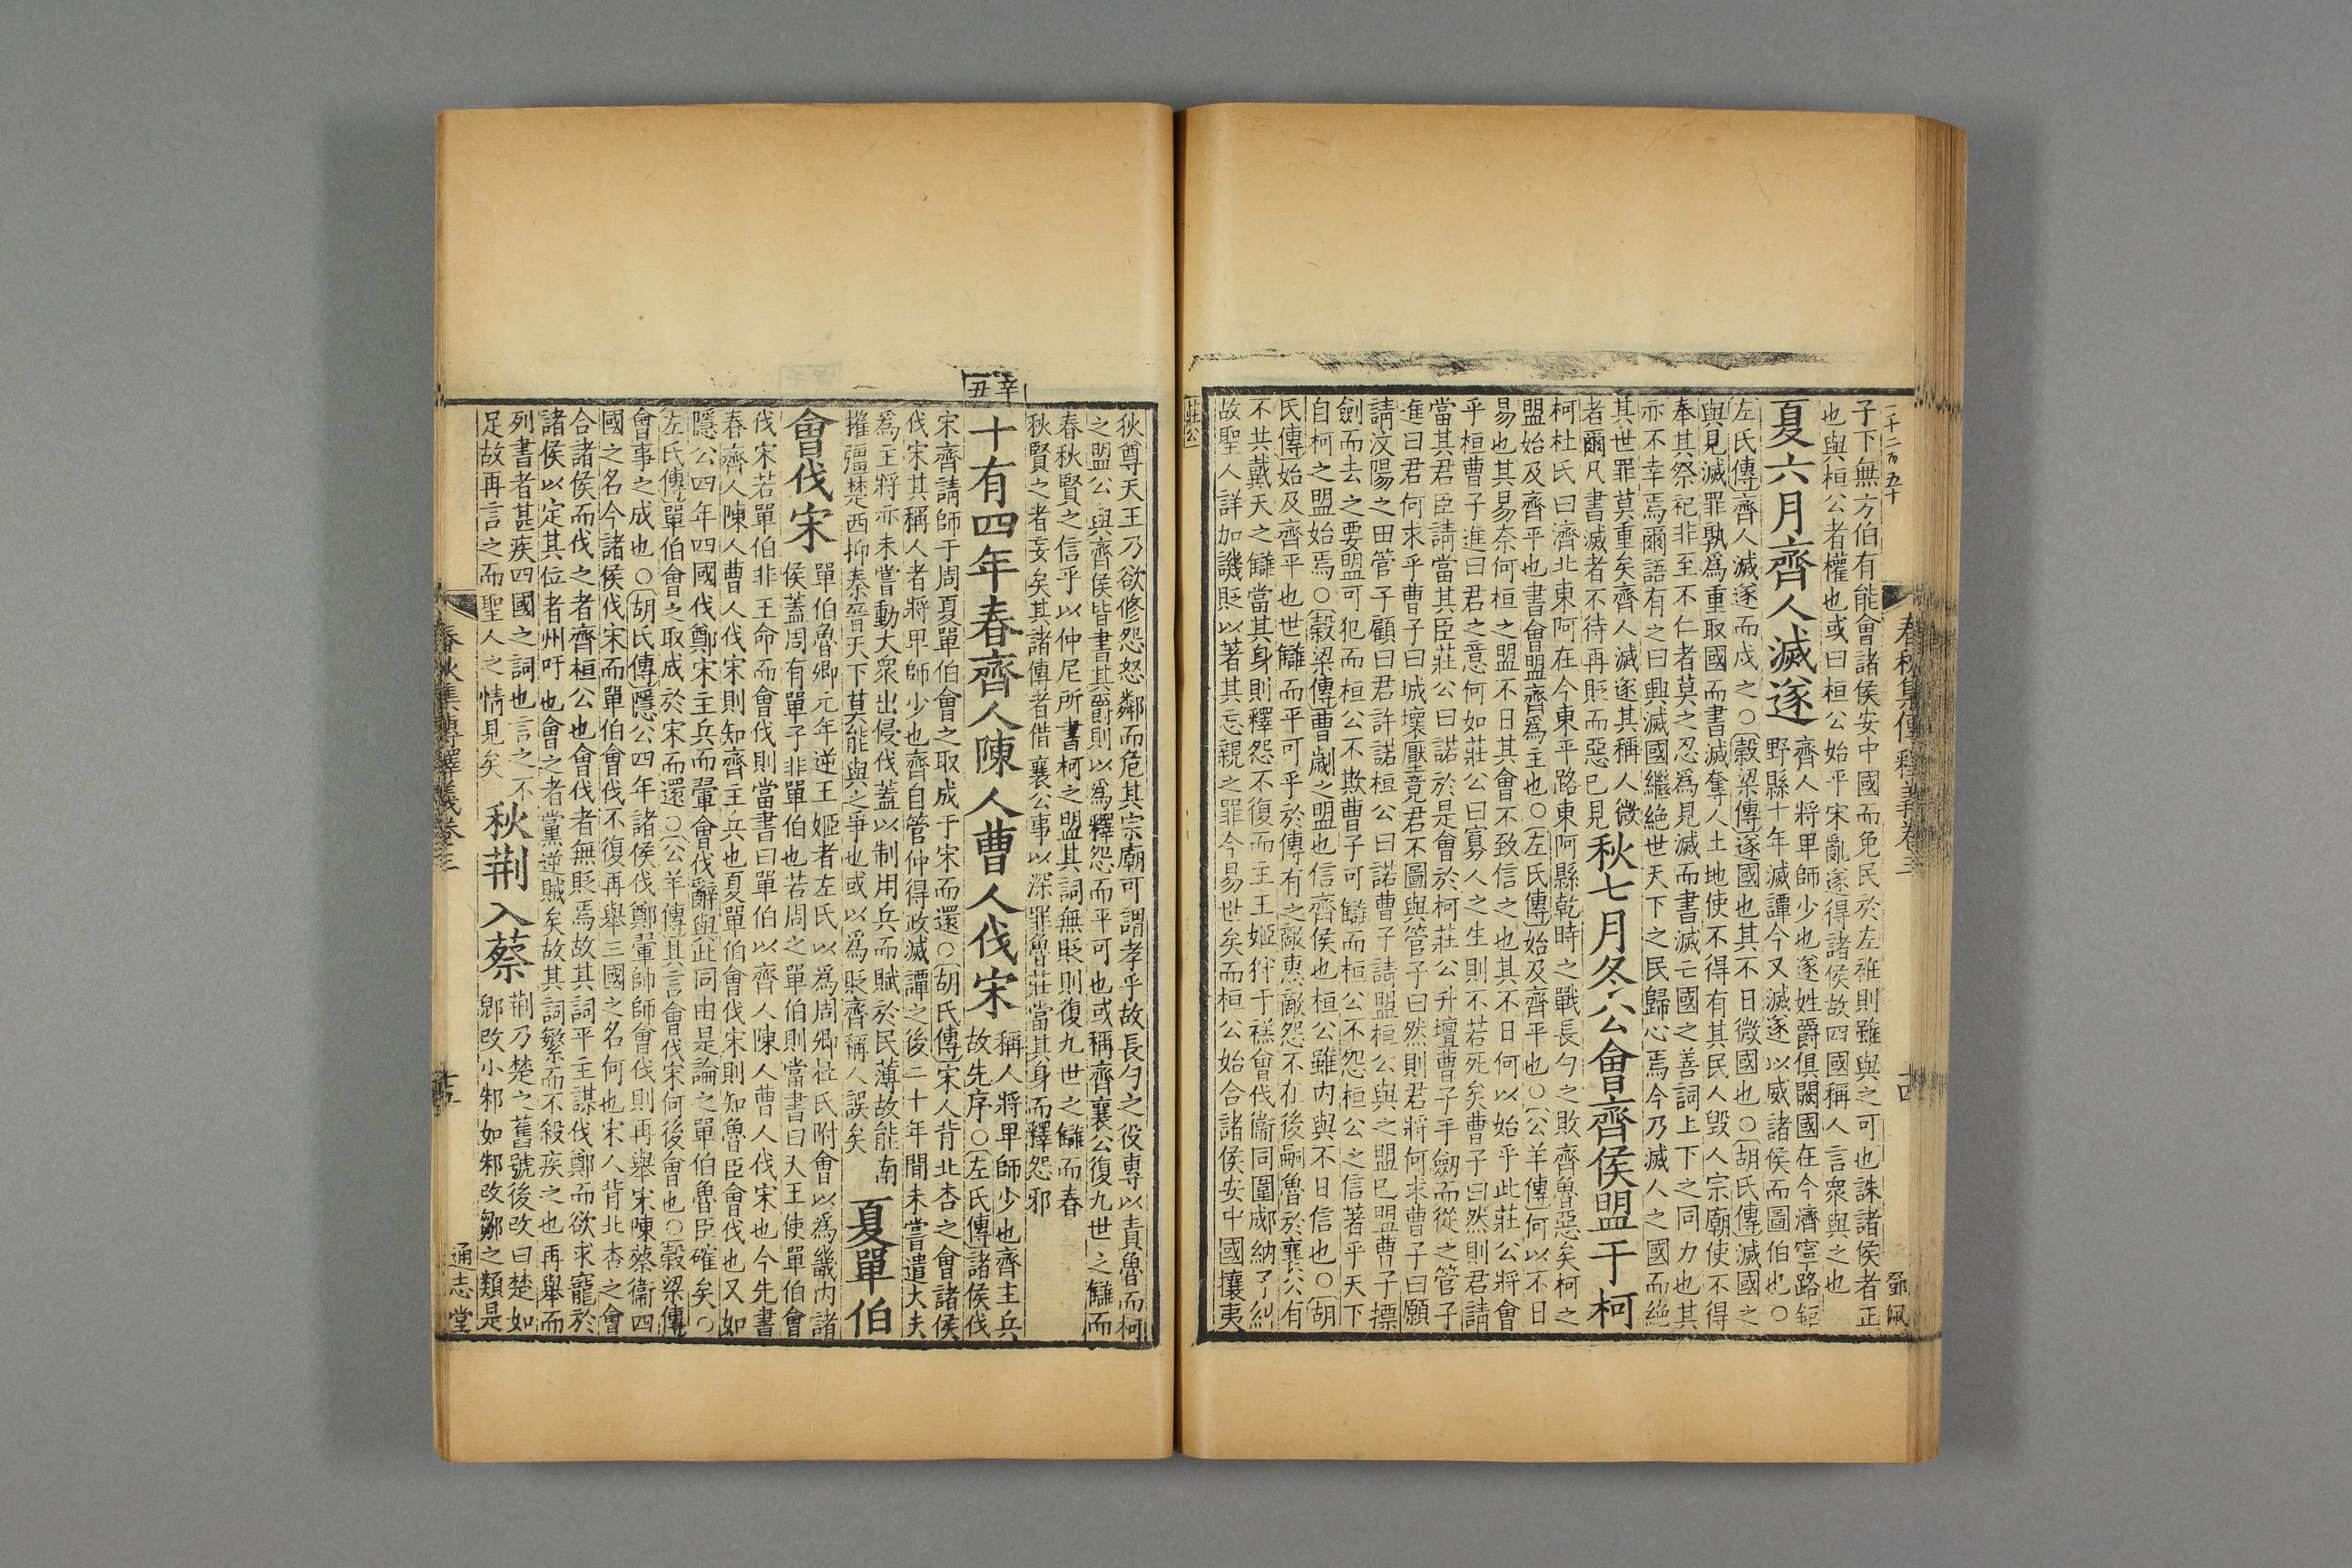 一千二百五十
子下無方伯有能會諸侯安中國而免民於左衽則雖與之可也誅諸侯者正
也與桓公者權也或曰桓公始平宋亂遂得諸侯故四國稱人言衆與之也
夏六月齊人滅遂
齊人將卑師少也遂姓爵俱闕國在今濟寧路鉅
野縣十年滅譚今又滅遂以威諸侯而圖伯也○
左氏傳齊人滅遂而戍之○穀梁傳遂國也其不日微國也○胡氏傳滅國之
與見滅罪孰爲重取國而書滅奪人土地使不得有其民人毁人宗廟使不得
奉其祭祀非至不仁者莫之忍爲見滅而書滅亡國之善詞上下之同力也其
亦不幸焉爾語有之曰興滅國繼絶世天下之民歸心焉今乃滅人之國而絶
其世罪莫重矣齊人滅遂其稱人微
者爾凡書滅者不待再貶而惡已見
秋七月冬公會齊侯盟于柯
柯杜氏曰濟北東阿在今東平路東阿縣乾時之戰長勺之敗齊魯惡矣柯之
盟始及齊平也書會盟齊爲主也○左氏傳始及齊平也○公羊傳何以不日
易也其易奈何桓之盟不日其會不致信之也其不日何以始乎此莊公將會
乎桓曹子進曰君之意何如莊公曰寡人之生則不若死矣曹子曰然則君請
當其君臣請當其臣莊公曰諾於是會於柯莊公升壇曹子手劒而從之管子
進曰君何求乎曹子曰城壞壓竟君不圖與管子曰然則君將何求曹子曰願
請汶陽之田管子顧曰君許諾桓公曰諾曹子請盟桓公與之盟已盟曹子摽
劍而去之要盟可犯而桓公不欺曹子可讎而桓公不怨桓公之信著乎天下
自柯之盟始焉○穀梁傳曹劌之盟也信齊侯也桓公雖内與不日信也○胡
氏傳始及齊平也世讎而平可乎於傳有之敵惠敵怨不在後嗣魯於襄公有
不共戴天之讎當其身則釋怨不復而主王姬狩于禚會伐衞同圍郕納子糾
故聖人詳加譏貶以著其忘親之罪今易世矣而桓公始合諸侯安中國攘夷
春秋集傳釋義卷三
十四
鄧珮
莊公
狄尊天王乃欲修怨怒鄰而危其宗廟可謂孝乎故長勺之役專以責魯而柯
之盟公與齊侯皆書其爵則以爲釋怨而平可也或稱齊襄公復九世之讎而
春秋賢之信乎以仲尼所書柯之盟其詞無貶則復九世之讎而春
秋賢之者妄矣其諸傳者借襄公事以深罪魯莊當其身而釋怨邪
辛丑
十有四年春齊人陳人曹人伐宋
稱人將卑師少也齊主兵
故先序○左氏傳諸侯伐
宋齊請師于周夏單伯會之取成于宋而還○胡氏傳宋人背北杏之會諸侯
伐宋其稱人者將卑師少也齊自管仲得政滅譚之後二十年間未嘗遣大夫
爲主將亦未嘗動大衆出侵伐蓋以制用兵而賦於民薄故能南
摧彊楚西抑秦晉天下莫能與之爭也或以爲貶齊稱人誤矣
夏單伯
會伐宋
單伯魯卿元年逆王姬者左氏以爲周卿杜氏附會以爲畿内諸
侯蓋周有單子非單伯也若周之單伯則當書曰天王使單伯會
伐宋若單伯非王命而會伐則當書曰單伯以齊人陳人曹人伐宋也今先書
春齊人陳人曹人伐宋則知齊主兵也夏單伯會伐宋則知魯臣會伐也又如
隱公四年四國伐鄭宋主兵而翬會伐辭與此同由是論之單伯魯臣確矣○
左氏傳單伯會之取成於宋而還○公羊傳其言會伐宋何後會也○穀梁傳
會事之成也○胡氏傳隱公四年諸侯伐鄭翬帥師會伐則再舉宋陳蔡衞四
國之名今諸侯伐宋而單伯會伐不復再舉三國之名何也宋人背北杏之會
合諸侯而伐之者齊桓公也會伐者無貶焉故其詞平主謀伐鄭而欲求寵於
諸侯以定其位者州吁也會之者黨逆賊矣故其詞繁而不殺疾之也再舉而
列書者甚疾四國之詞也言之不
足故再言之而聖人之情見矣
秋荆入蔡
荆乃楚之舊號後改曰楚如
郳改小邾如邾改鄒之類是
春秋集傳釋義卷三
十五
通志堂